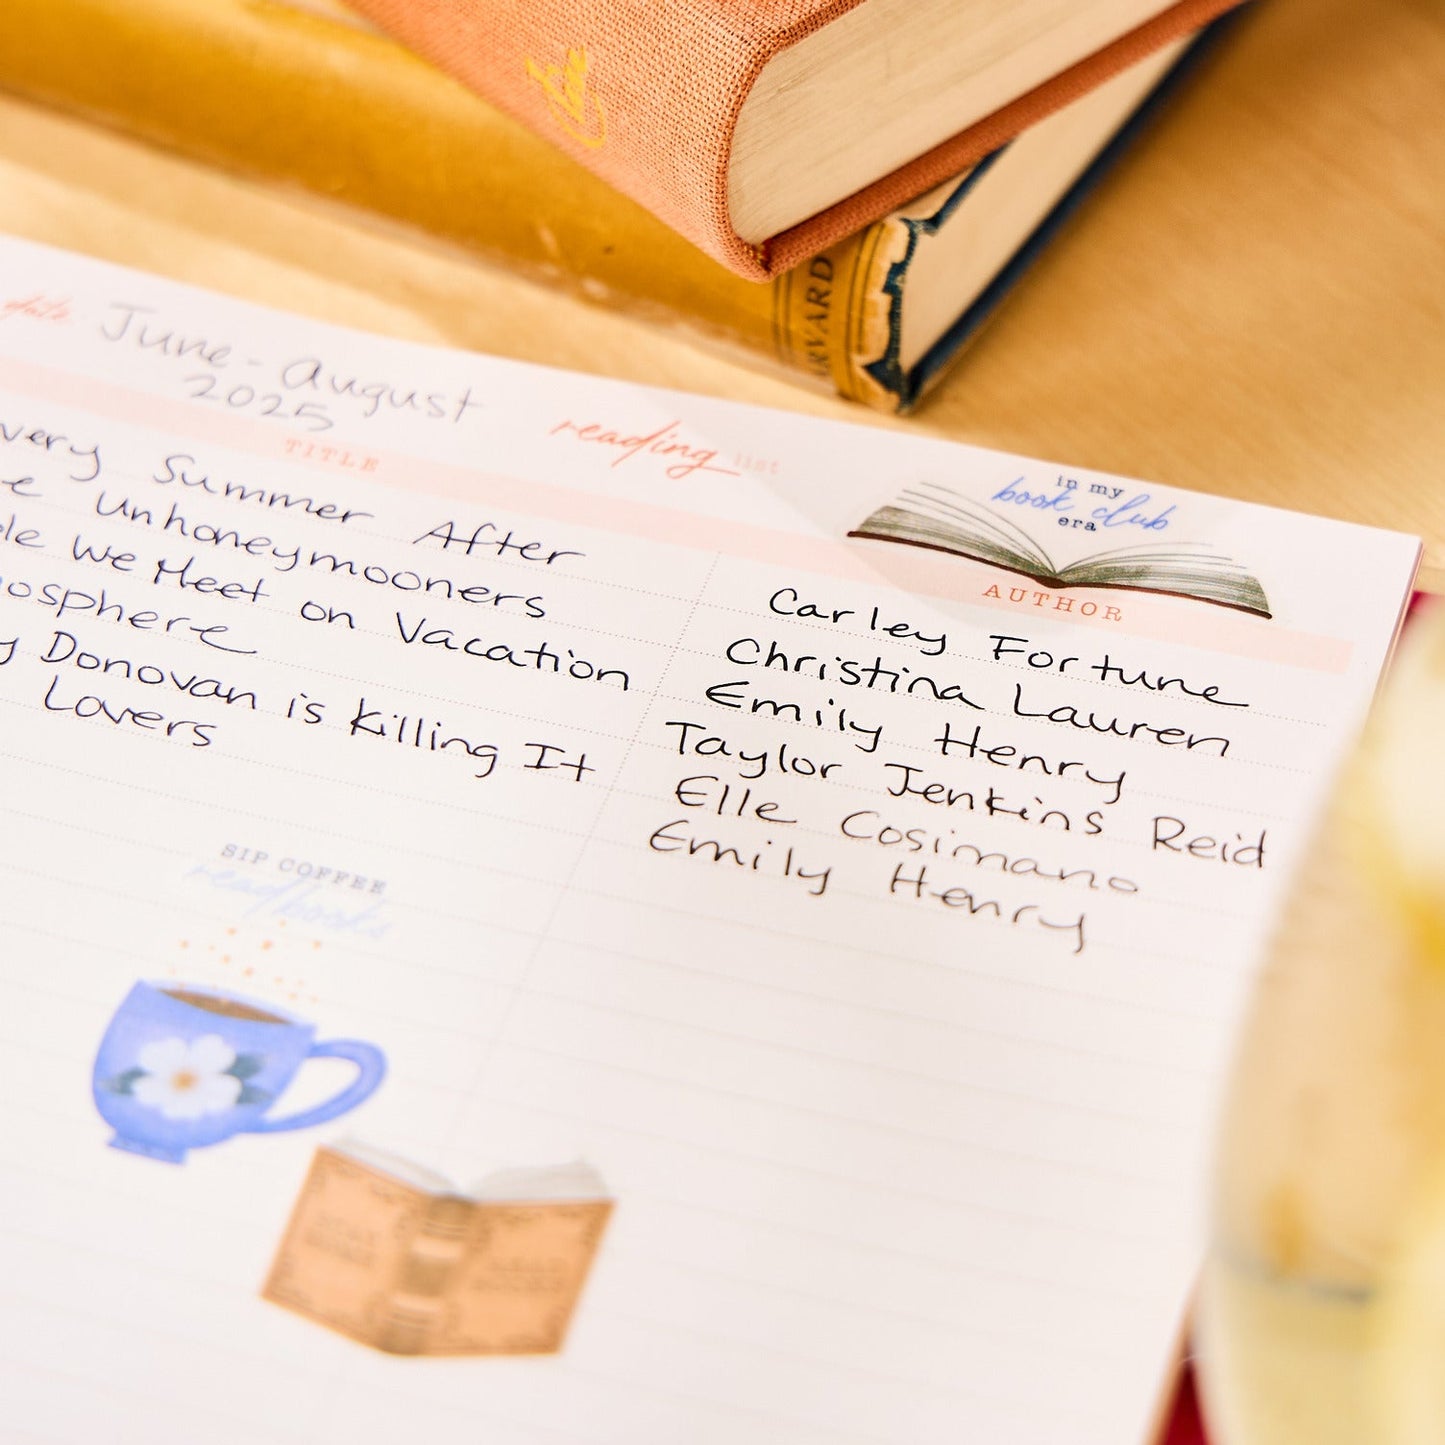 date June - August
2025
reading list
in my
book club
era
TITLE
AUTHOR
very Summer After Carley Fortune
e Unhoneymooners Christina Lauren
ple We Meet on Vacation Emily Henry
mosphere Taylor Jenkins Reid
y Donovan is Killing It Elle Cosimano
Lovers Emily Henry
SIP COFFEE
read books
RVARD